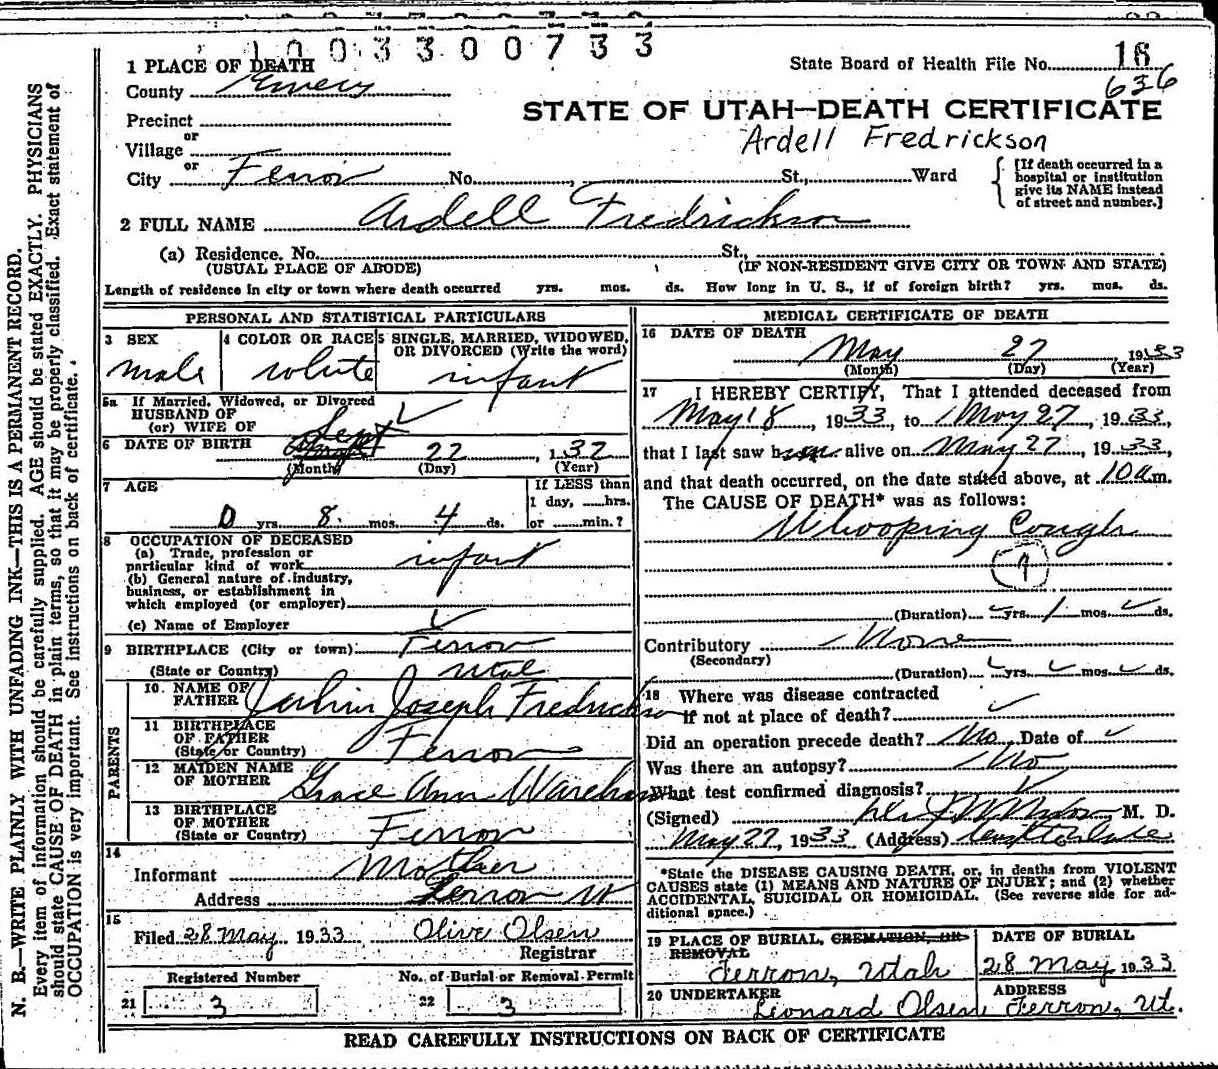 1003300733
1 PLACE OF DEATH
State Board of Health File No. 16
636
County Emery
STATE OF UTAH—DEATH CERTIFICATE
Precinct
or
Ardell Fredrickson
Village
or
City Ferron No. , St., Ward
[If death occurred in a hospital or institution give its NAME instead of street and number.]
2 FULL NAME Ardell Fredrickson
(a) Residence. No. St.,
(USUAL PLACE OF ABODE) (IF NON-RESIDENT GIVE CITY OR TOWN AND STATE)
Length of residence in city or town where death occurred yrs. mos. ds. How long in U. S., if of foreign birth? yrs. mos. ds.
PERSONAL AND STATISTICAL PARTICULARS
3 SEX
male
4 COLOR OR RACE
white
5 SINGLE, MARRIED, WIDOWED,
OR DIVORCED (Write the word)
infant
5a If Married, Widowed, or Divorced
HUSBAND OF
(or) WIFE OF
6 DATE OF BIRTH Sept 22, 1932
(Month) (Day) (Year)
7 AGE
0 yrs. 8 mos. 4 ds.
If LESS than
1 day, hrs.
or min.?
8 OCCUPATION OF DECEASED
(a) Trade, profession or
particular kind of work infant
(b) General nature of industry,
business, or establishment in
which employed (or employer)
(c) Name of Employer
9 BIRTHPLACE (City or town) Ferron
(State or Country) Utah
PARENTS
10. NAME OF
FATHER Joseph Fredrickson
11 BIRTHPLACE
OF FATHER
(State or Country) Ferron
12 MAIDEN NAME
OF MOTHER Grace Ann Wareham
13 BIRTHPLACE
OF MOTHER
(State or Country) Ferron
14
Informant Mother
Address Ferron Ut
15
Filed 28 May 1933 Olive Olsen
Registrar
Registered Number No. of Burial or Removal Permit
21 3 22 3
MEDICAL CERTIFICATE OF DEATH
16 DATE OF DEATH
May 27, 1933
(Month) (Day) (Year)
17 I HEREBY CERTIFY, That I attended deceased from
May 18, 1933, to May 27, 1933,
that I last saw him alive on May 27, 1933,
and that death occurred, on the date stated above, at 10 a.m.
The CAUSE OF DEATH* was as follows:
Whooping Cough
(Duration) yrs. 1 mos. ds.
Contributory None
(Secondary)
(Duration) yrs. mos. ds.
18 Where was disease contracted
If not at place of death?
Did an operation precede death? No Date of
Was there an autopsy? No
What test confirmed diagnosis?
(Signed) M. D.
May 27, 1933 (Address)
*State the DISEASE CAUSING DEATH, or, in deaths from VIOLENT
CAUSES state (1) MEANS AND NATURE OF INJURY; and (2) whether
ACCIDENTAL, SUICIDAL OR HOMICIDAL. (See reverse side for ad-
ditional space.)
19 PLACE OF BURIAL, CREMATION, OR
REMOVAL
Ferron, Utah
DATE OF BURIAL
28 May 1933
20 UNDERTAKER
Leonard Olsen
ADDRESS
Ferron, Ut.
READ CAREFULLY INSTRUCTIONS ON BACK OF CERTIFICATE
N. B.—WRITE PLAINLY WITH UNFADING INK—THIS IS A PERMANENT RECORD.
Every item of information should be carefully supplied. AGE should be stated EXACTLY. PHYSICIANS
should state CAUSE OF DEATH in plain terms, so that it may be properly classified. Exact statement of
OCCUPATION is very important. See instructions on back of certificate.